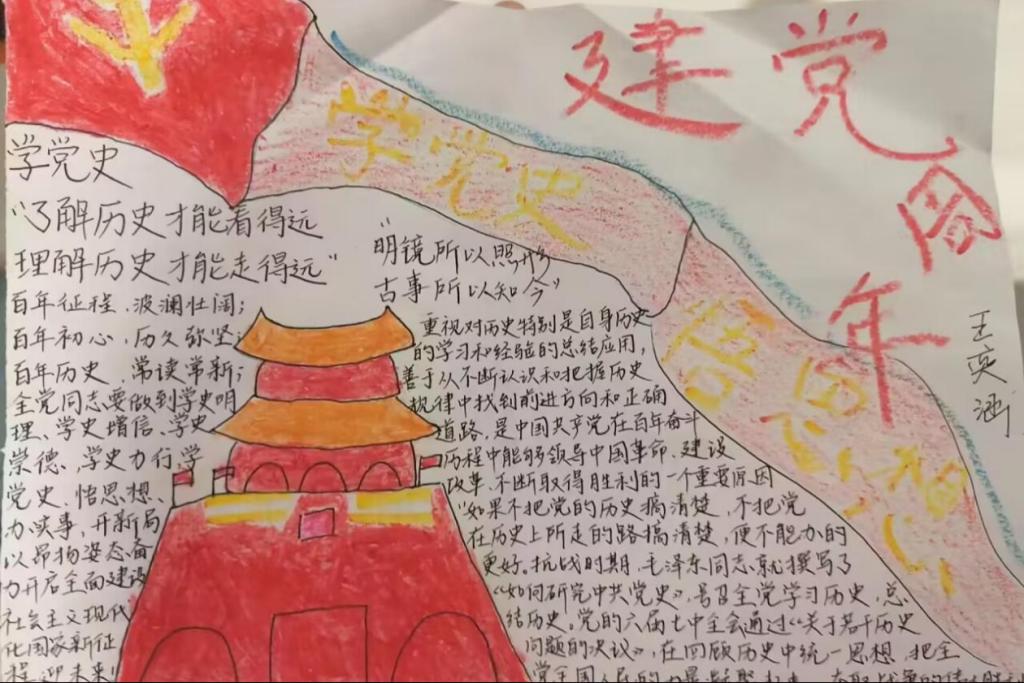 建党周年
学党史
悟思想
王奕涵
学党史
“了解历史才能看得远
理解历史才能走得远”
百年征程，波澜壮阔；
百年初心，历久弥坚；
百年历史，常读常新；
全党同志要做到学史明
理、学史增信、学史
崇德、学史力行学
党史、悟思想、
办实事、开新局
以昂扬姿态奋
力开启全面建设
社会主义现代
化国家新征
程，迎未来！
“明镜所以照形
古事所以知今”
重视对历史特别是自身历史
的学习和经验的总结应用，
善于从不断认识和把握历史
规律中找到前进方向和正确
道路，是中国共产党在百年奋斗
历程中能够领导中国革命、建设
改革、不断取得胜利的一个重要原因
“如果不把党的历史搞清楚，不把党
在历史上所走的路搞清楚，便不能办的
更好。抗战时期，毛泽东同志就撰写了
《如何研究中共党史》，号召全党学习历史，总
结历史。党的六届七中全会通过《关于若干历史
问题的决议》，在回顾历史中统一思想，把全